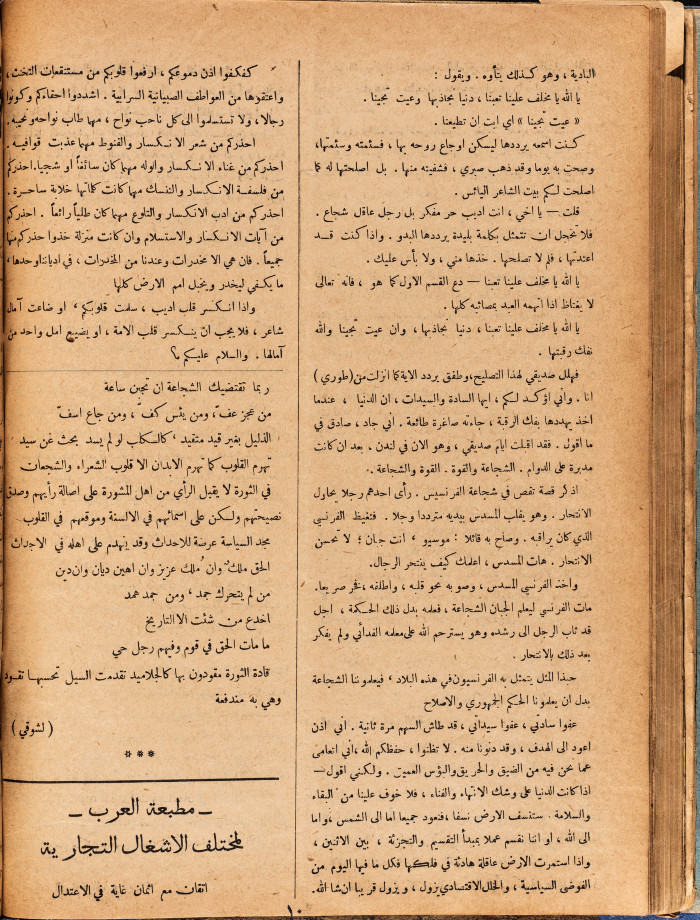 البادية ، وهو كذلك يتأوه . ويقول :
يا الله يا مخلف علينا تعبنا ، دنيا نجاذبها وعيت تجينا .
« عيت تجينا » اي ابت ان تطيعنا .
كنت اسمعه يرددها ليسكن اوجاع روحه بها ، فسئمته وسئمتها،
وصحت به يوما وقد ذهب صبري ، فشفيته منها . بل اصلحتها له كما
اصلحت لكم بيت الشاعر اليائس .
قلت — يا اخي ، انت اديب حر مفكر بل رجل عاقل شجاع .
فلا تخجل ان تتمثل بكلمة بليدة يرددها البدو . واذا كنت قد
اعتدتها ، فلم لا تصلحها . خذها مني ، ولا بأس عليك .
يا الله يا مخلف علينا تعبنا — دع القسم الاول كما هو ، فانه تعالى
لا يغتاظ اذا اتهمه العبد بمصائبه كلها .
يا الله يا مخلف علينا تعبنا ، دنيا نجاذبها ، وان عيت تجينا والله
نفك رقبتها .
فهلل صديقي لهذا التصليح،وطفق يردد الاية كما انزلت من (طوري )
انا . واني اؤكد لكم ، ايها السادة والسيدات ، ان الدنيا ، عندما
اخذ يهددها بفك الرقبة ، جاءته صاغرة طائعة . اني جاد ، صادق في
ما اقول . فقد اقبلت ايام صديقي ، وهو الان في لندن . بعد ان كانت
مدبرة على الدوام . الشجاعة والقوة . القوة والشجاعة .
اذكر قصة تقص في شجاعة الفرنسيس . رأى احدهم رجلا يحاول
الانتحار . وهو يقلب المسدس بيديه مترددا وجلا . فتغيظ الفرنسي
الذي كان يراقبه . وصاح به قائلا : موسيو ، انت جبان ؛ لا تحسن
الانتحار . هات المسدس ، اعلمك كيف ينتحر الرجال.
واخذ الفرنسي المسدس ، وصوبه نحو قلبه ، واطلقه ،فخر صريعا.
مات الفرنسي ليعلم الجبان الشجاعة ، فعلمه بدل ذلك الحكمة ، اجل
قد تاب الرجل الى رشده وهو يسترحم الله على معلمه الفدائي ولم يفكر
بعد ذلك بالانتحار
حبذا المثل يتمثل به الفرنسيون في هذه البلاد ، فيعلموننا الشجاعة
بدل ان يعلمونا الحكم الجمهوري والاصلاح
عفوا سادتي ، عفوا سيداتي ، قد طاش السهم مرة ثانية . اني اذن
اعود الى الهدف ، وقد دنونا منه . لا تظنوا ، حفظكم الله ،اني اتعامى
عما نحن فيه من الضيق والحريق والبؤس العميق . ولكني اقول —
اذا كانت الدنيا على وشك الانتهاء والفناء ، فلا خوف علينا من البقاء
والسلامة . ستنسف الارض نسفا،فنعود جميعا اما الى الشمس ،واما
الى الله ، او اننا نقسم عملا بمبدأ التقسيم والتجزئة ، بين الاثنين ،
واذا استمرت الارض عاقلة هادئة في فلكها فكل ما فيها اليوم من
الفوضى السياسية ، والخلل الاقتصادي يزول ، ويزول قريبا ان شا الله.
كفكفوا اذن دموعكم ، ارفعوا قلوبكم من مستنقعات التخث ،
واعتقوها من العواطف الصبيانية السرابية . اشددوا احفاءكم وكونوا
رجالا، ولا تستسلموا الى كل ناحب نواح ، مهما طاب نواحه ونحيبه .
احذركم من شعر الانكسار والقنوط مهما عذبت قوافيه .
احذركم من غناء الانكسار والوله مهما كان سائغا او شجيا.احذركم
من فلسفة الانكسار والتنسك مهما كانت كلماتها خلابة ساحرة .
احذركم من ادب الانكسار والتلوع مهما كان طليا رائعا . احذركم
من آيات الانكسار والاستسلام وان كانت منزلة خذوا حذركم منها
جميعا . فان هي الا مخدرات وعندنا من المخدرات ، في ادياننا وحدها ،
ما يكفي ليخدر ويخبل امم الارض كلها
واذا انكسر قلب اديب ، سلمت قلوبكم ، او ضاعت آمال
شاعر ، فلا يجب ان ينكسر قلب الامة ، او يضيع امل واحد من
آمالها . والسلام عليكم ؟
ربما تقتضيك الشجاعة ان تجبن ساعة
من عجز عفّ ، ومن يئس كف ، ومن جاع اسفّ
الذليل بغير قيد متقيد ، كالكلب لو لم يسد بحث عن سيد
تهرم القلوب كما تهرم الابدان الا قلوب الشعراء والشجعان
في الثورة لا يقبل الرأي من اهل المشورة على اصالة رأيهم وصدق
نصيحتهم ولكن على اسمائهم في الالسنة وموقعهم في القلوب
مجد السياسة عرضة للاحداث وقد ينهدم على اهله في الاجداث
الحق ملك وان مُلك عزيز وان اهين ديان وان دين
من لم يتحرك جمد ، ومن جمد همد
اخدع من شئت الا التاريخ
ما مات الحق في قوم وفيهم رجل حي
قادة الثورة مقودون بها كالجلاميد تقدمت السيل تحسبها تقود
وهي به مندفعة
( لشوقي )
***
ـ مطبعة العرب ـ
لمختلف الاشغال التجارية
اتقان مع اثمان غاية في الاعتدال
١٠